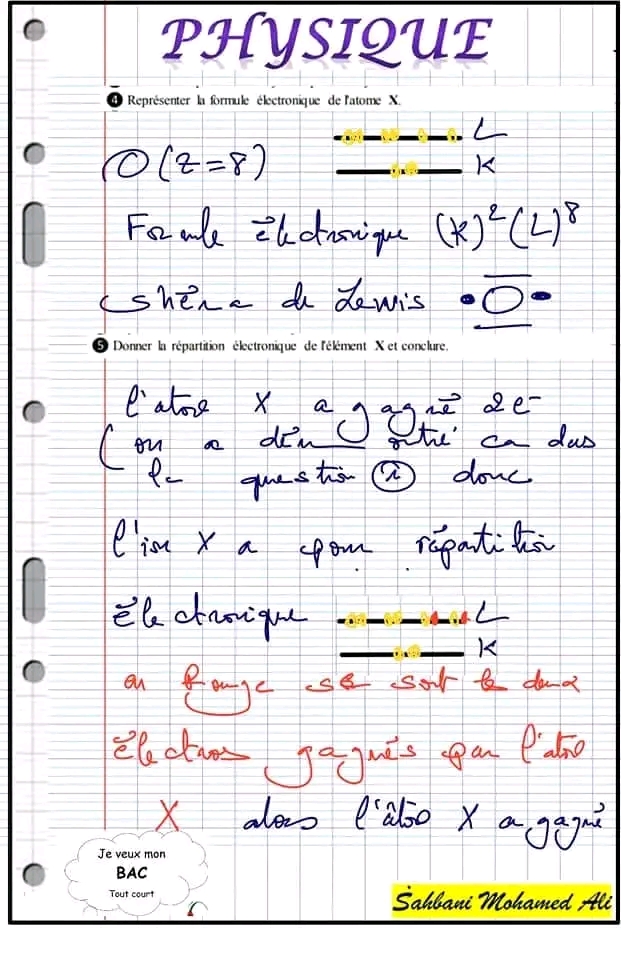 PHYSIQUE
4 Représenter la formule électronique de l'atome X.
L
O (Z=8)
K
Formule électronique (K)² (L)⁸
schéma de Lewis
5 Donner la répartition électronique de l'élément X et conclure.
l'atome X a gagné 2e-
(on a démontré ça dans
la question donc
l'ion X a pour répartition
électronique L
K
en Rouge se sont les deux
électrons gagnés par l'atome
X alors l'âtom X a gagné
Je veux mon
BAC
Tout court
Sahbani Mohamed Ali